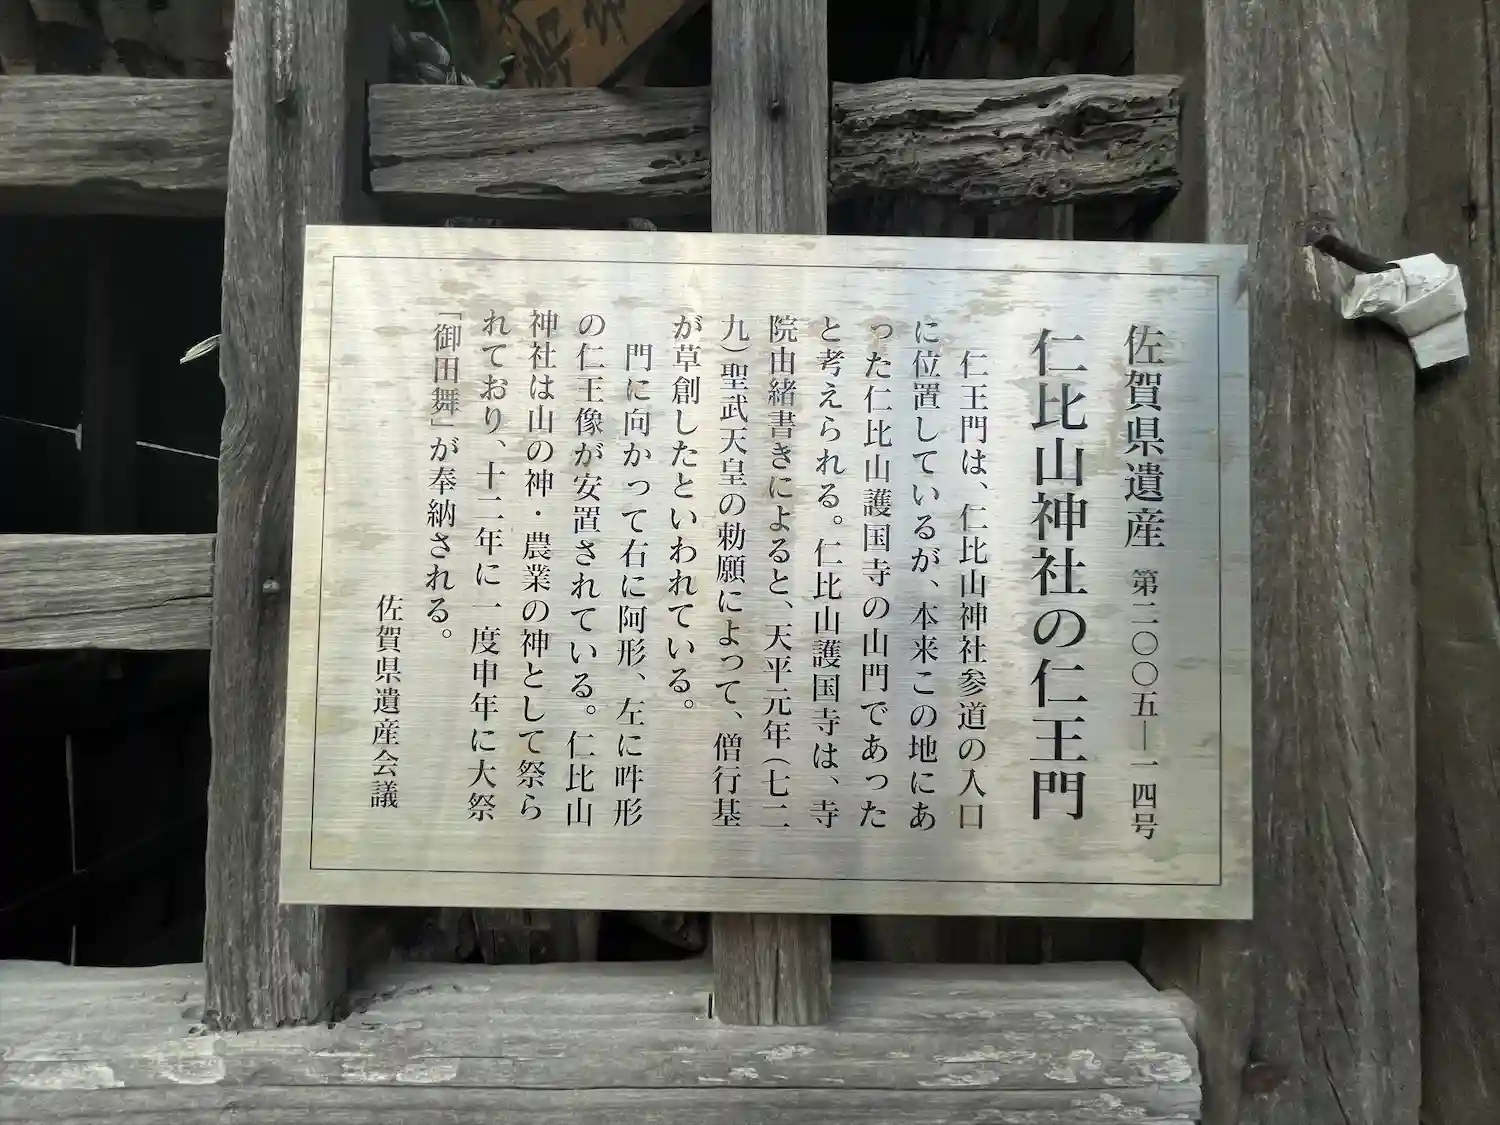 佐賀県遺産 第二〇〇五―一四号
仁比山神社の仁王門
仁王門は、仁比山神社参道の入口
に位置しているが、本来この地にあ
った仁比山護国寺の山門であった
と考えられる。仁比山護国寺は、寺
院由緒書きによると、天平元年(七二
九)聖武天皇の勅願によって、僧行基
が草創したといわれている。
門に向かって右に阿形、左に吽形
の仁王像が安置されている。仁比山
神社は山の神・農業の神として祭ら
れており、十二年に一度申年に大祭
「御田舞」が奉納される。
佐賀県遺産会議